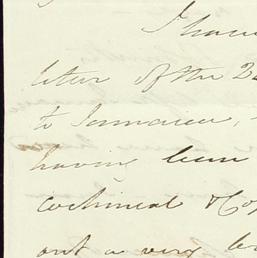 I have
letter of the 2
to Jamaica,
having been
cochineal & Co
out a very